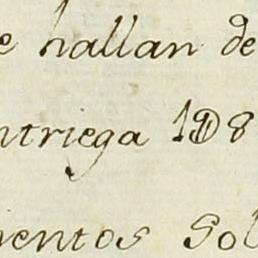 e hallan de
ntriega 1D8
mentos Sol